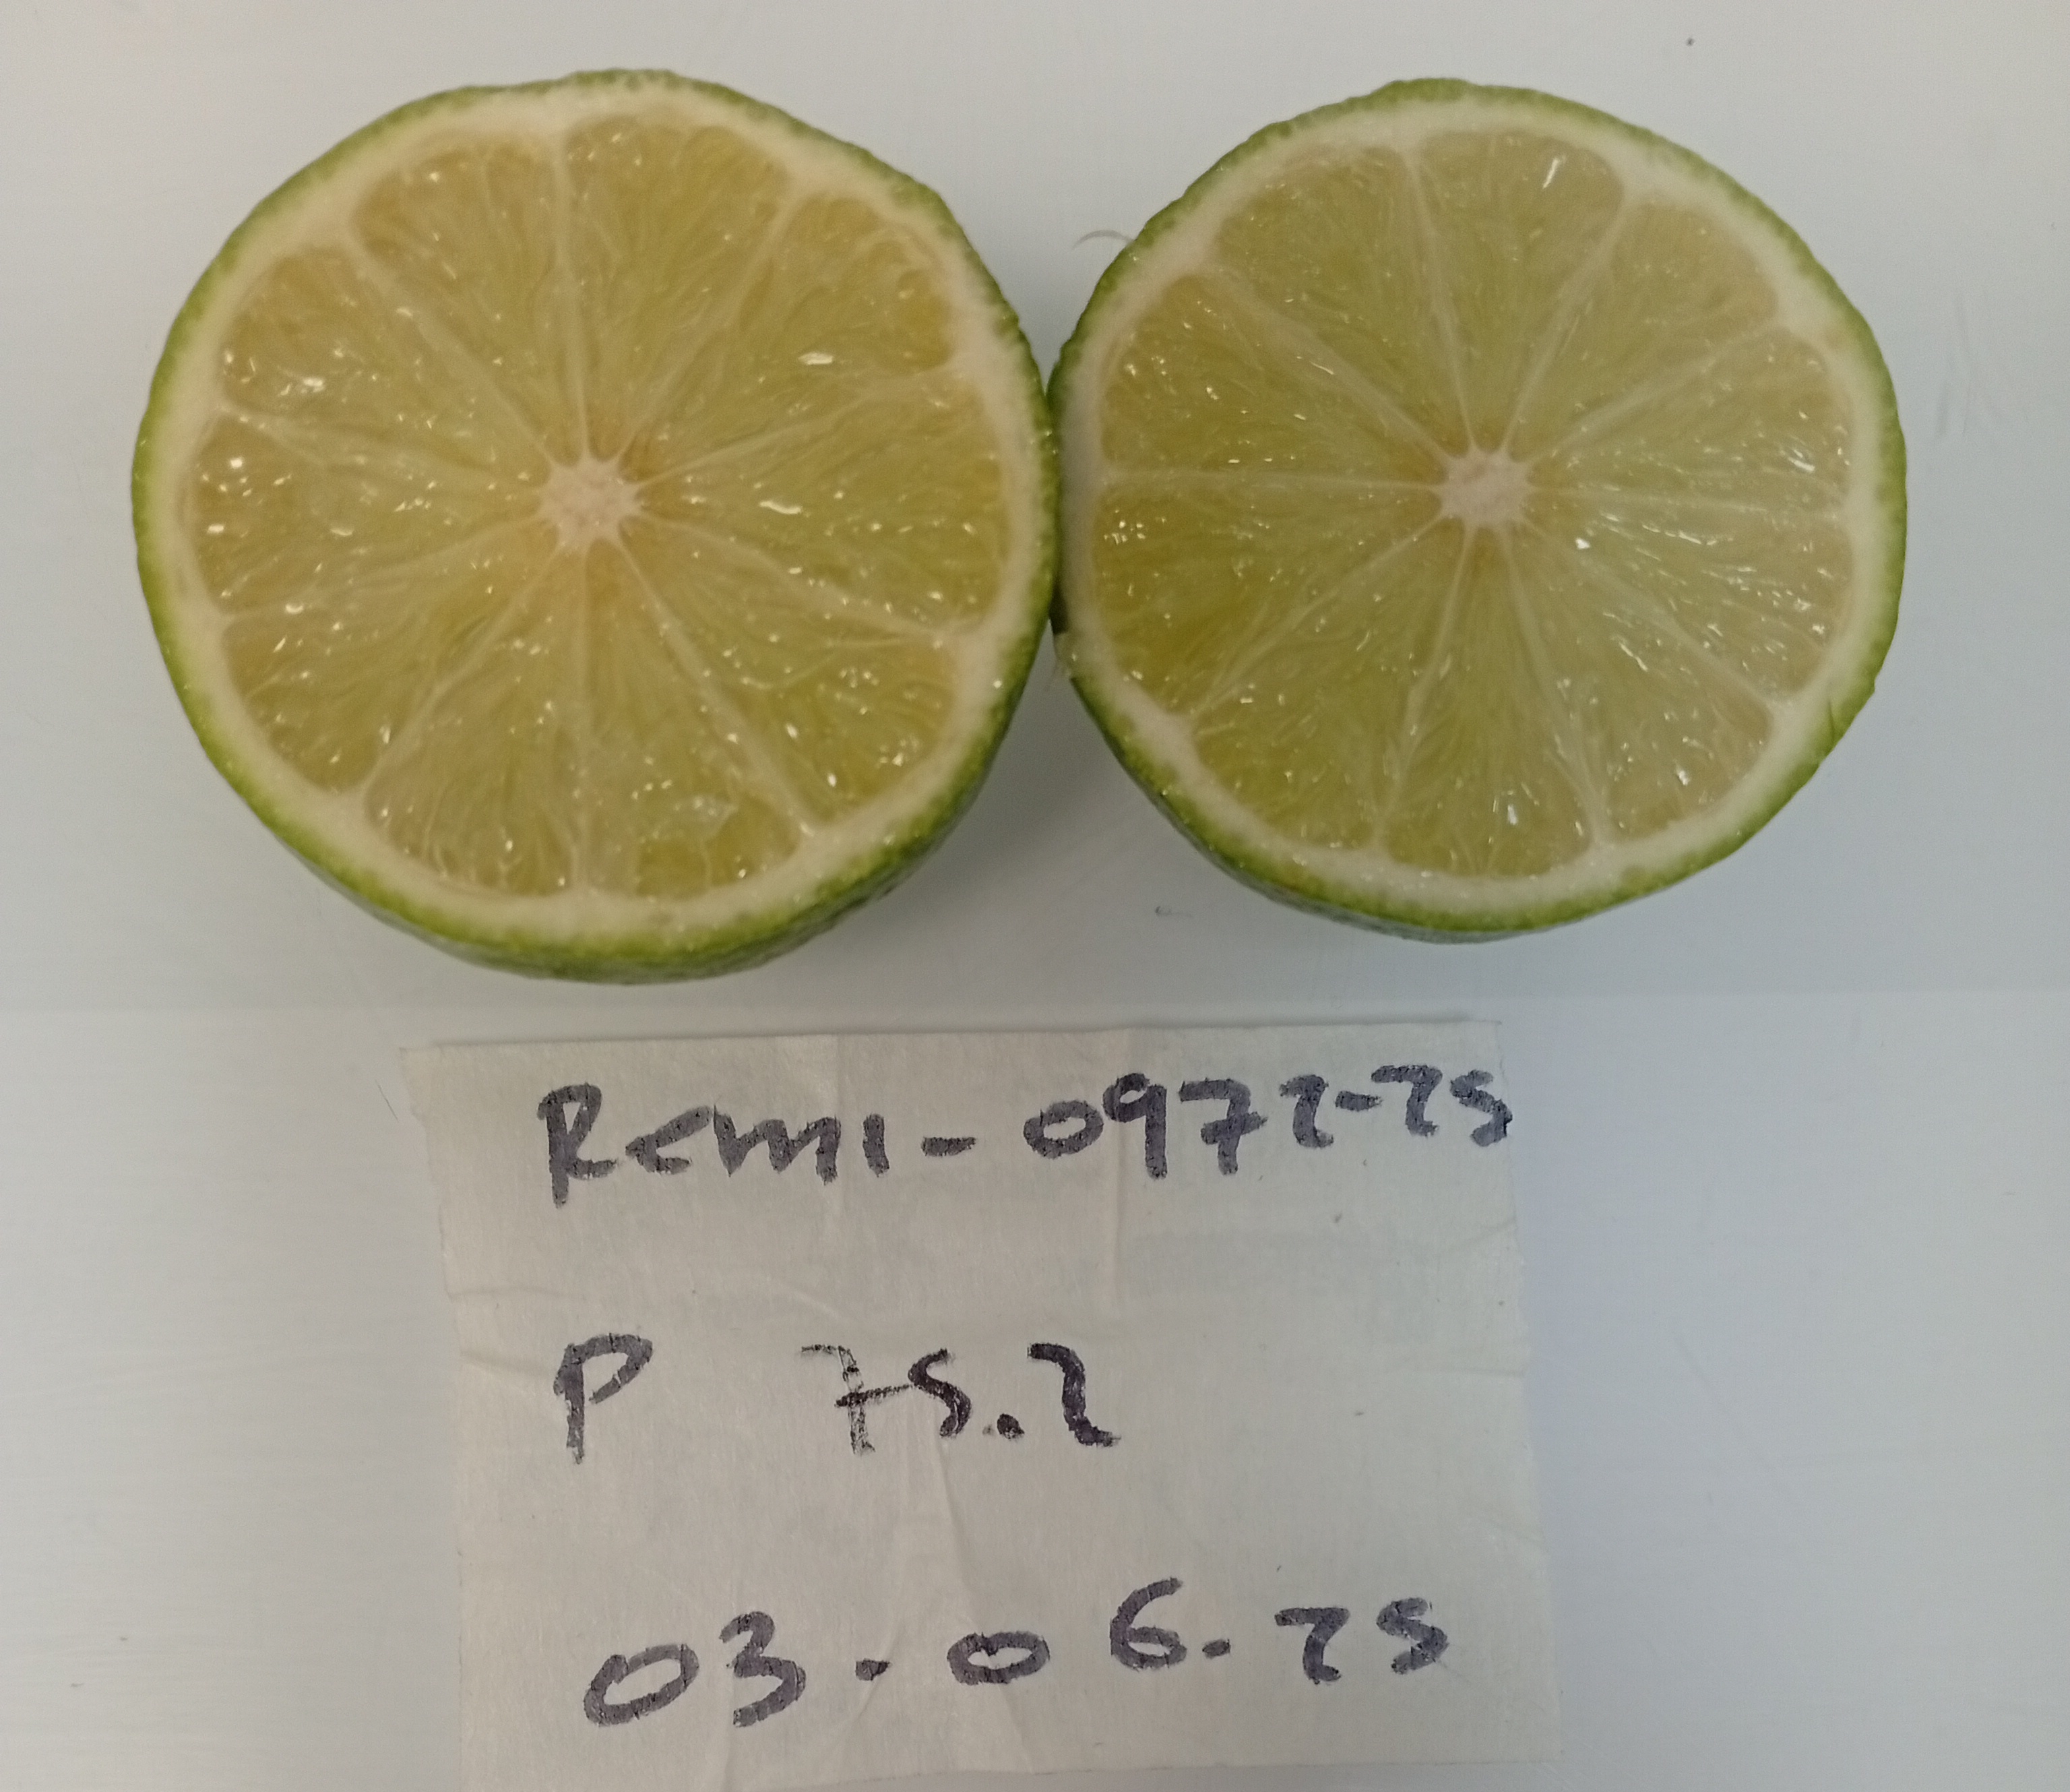 Remi-0972-25
P 75.2
03.06.25